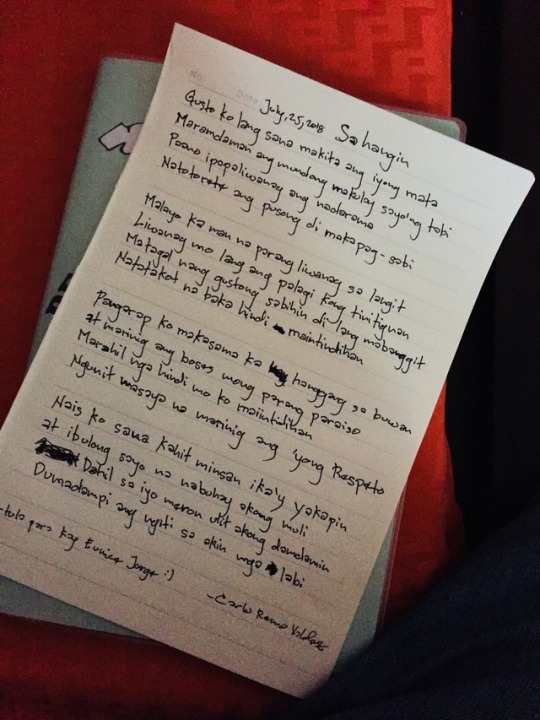 No.
Date
July, 25, 2018 Sa hangin
Gusto ko lang sana makita ang iyong mata
Maramdaman ang mundong makulay sayo'ng tabi
Paano ipapaliwanag ang nadarama
Natotorete ang pusong di makapag-sabi
Malayo ka man na parang liwanag sa langit
Liwanag mo lang ang palagi kong tinitignan
Matagal nang gustong sabihin di lang mabanggit
Natatakot na baka hindi maintindihan
Pangarap ko makasama ka hanggang sa buwan
at marinig ang boses mong parang paraiso
Marahil nga hindi mo ko maiintindihan
Ngunit masaya na marinig ang iyong Respeto
Nais ko sana kahit minsan ika'y yakapin
at ibulong sayo na nabuhay akong muli
Dahil sa iyo meron ulit akong damdamin
Dumadampi ang ngiti sa akin mga labi
-tula para kay Eunice Jorge :)
-Carlo Remo